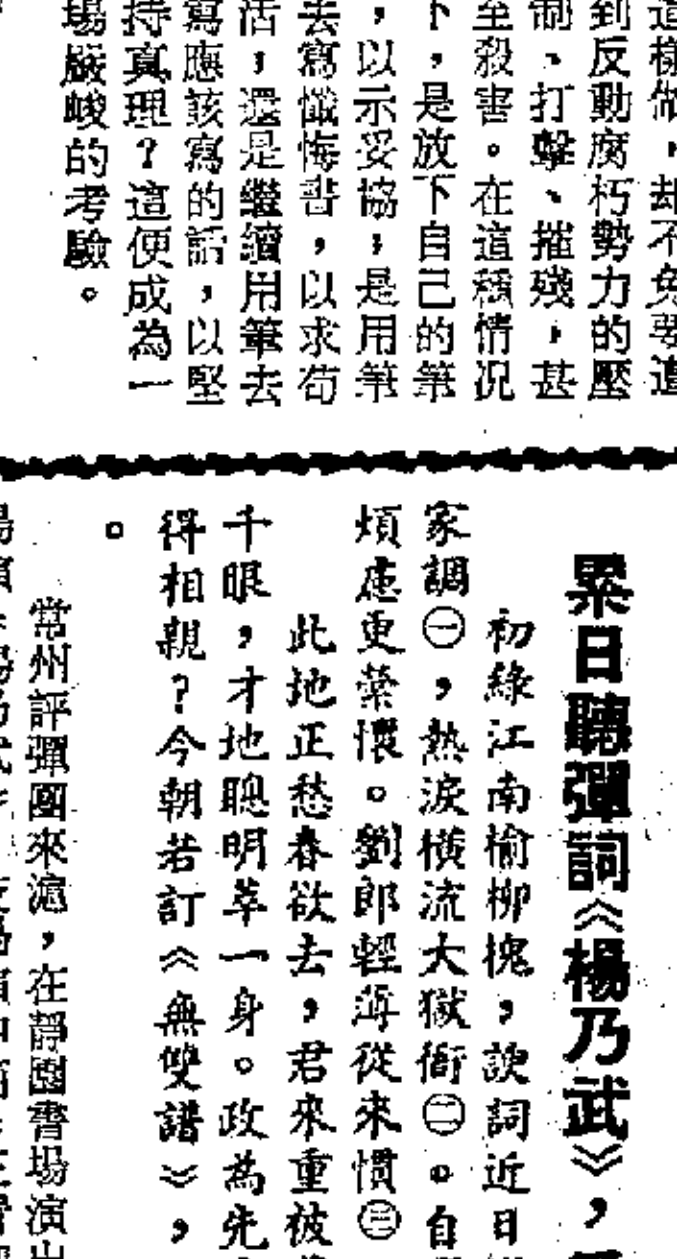 這樣做，却不免要遭
到反動腐朽勢力的壓
制、打擊、摧殘，甚
至殺害。在這種情况
下，是放下自己的筆
，以示妥協，是用筆
去寫懺悔書，以求苟
活，還是繼續用筆去
寫應該寫的話，以堅
持真理？這便成為一
場嚴峻的考驗。
累日聽彈詞《楊乃武》，
初綠江南榆柳槐，談詞近日
家調㊀，熱淚橫流大獄衙㊁。自
煩慮更縈懷。劉郎輕薄從來慣㊂
此地正愁春欲去，君來重被
千眼，才地聰明萃一身。政為先
得相親？今朝若訂《無雙譜》，
。
常州評彈團來滬，在靜園書場演出